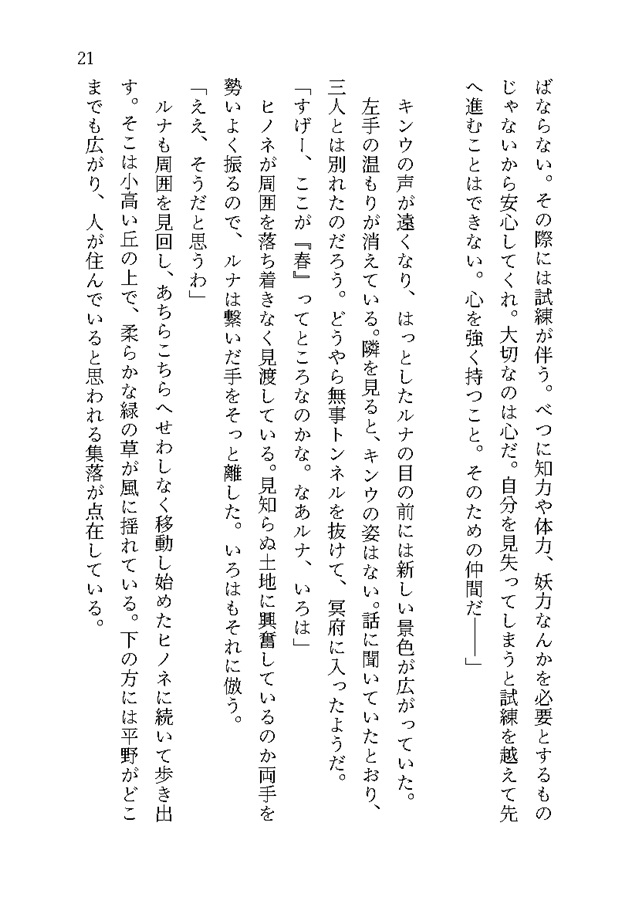 21
ばならない。その際には試練が伴う。べつに知力や体力、妖力なんかを必要とするもの
じゃないから安心してくれ。大切なのは心だ。自分を見失ってしまうと試練を越えて先
へ進むことはできない。心を強く持つこと。そのための仲間だ――」
キンウの声が遠くなり、はっとしたルナの目の前には新しい景色が広がっていた。
左手の温もりが消えている。隣を見ると、キンウの姿はない。話に聞いていたとおり、
三人とは別れたのだろう。どうやら無事トンネルを抜けて、冥府に入ったようだ。
「すげー、ここが『春』ってところなのかな。なあルナ、いろは」
ヒノネが周囲を落ち着きなく見渡している。見知らぬ土地に興奮しているのか両手を
勢いよく振るので、ルナは繋いだ手をそっと離した。いろはもそれに倣う。
「ええ、そうだと思うわ」
ルナも周囲を見回し、あちらこちらへせわしなく移動し始めたヒノネに続いて歩き出
す。そこは小高い丘の上で、柔らかな緑の草が風に揺れている。下の方には平野がどこ
までも広がり、人が住んでいると思われる集落が点在している。